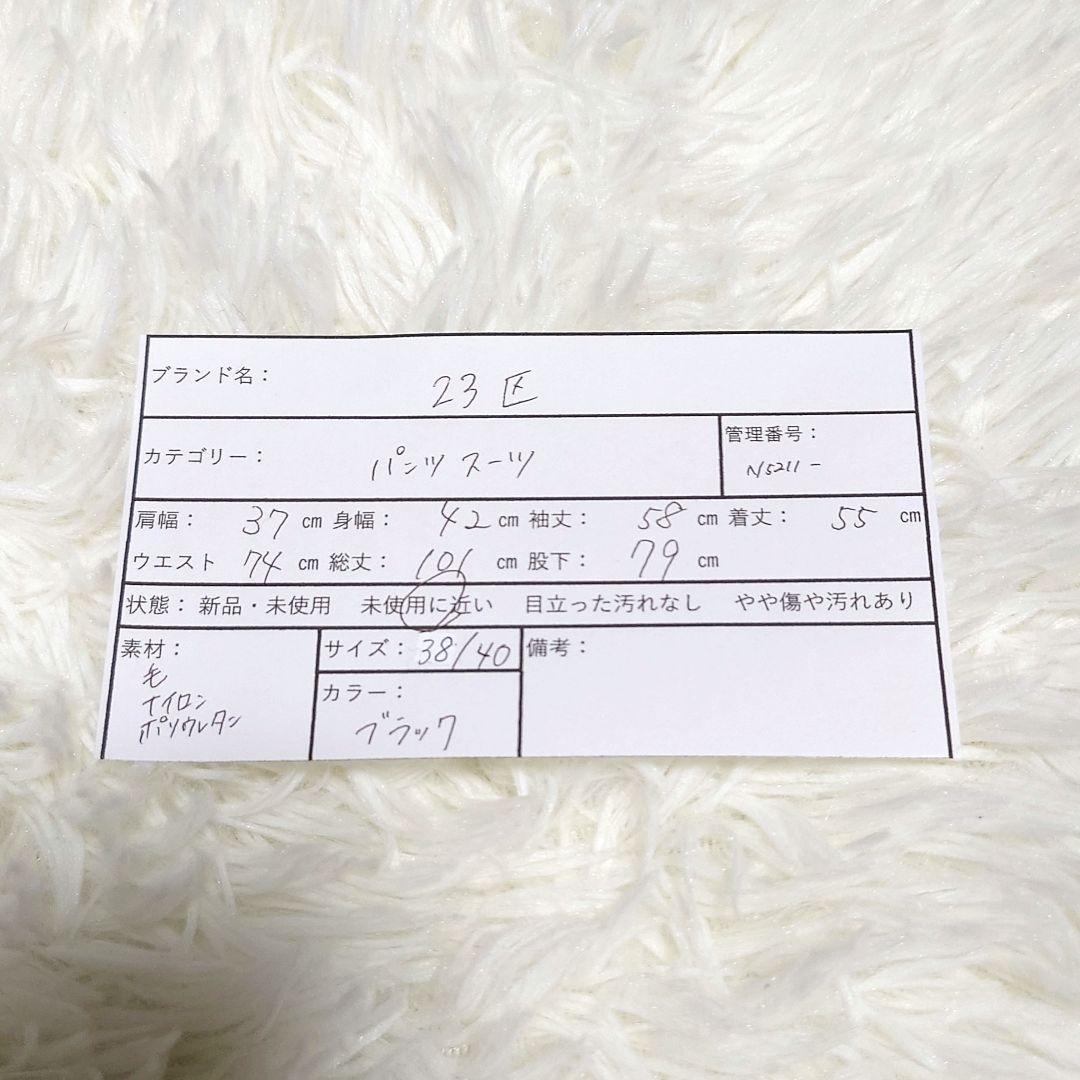 ブランド名： 23区
カテゴリー： パンツスーツ
管理番号： N5211-
肩幅： 37 cm 身幅： 42 cm 袖丈： 58 cm 着丈： 55 cm
ウエスト 74 cm 総丈： 101 cm 股下： 79 cm
状態： 新品・未使用 未使用に近い 目立った汚れなし やや傷や汚れあり
素材：
毛
ナイロン
ポリウレタン
サイズ： 38/40
カラー：
ブラック
備考：